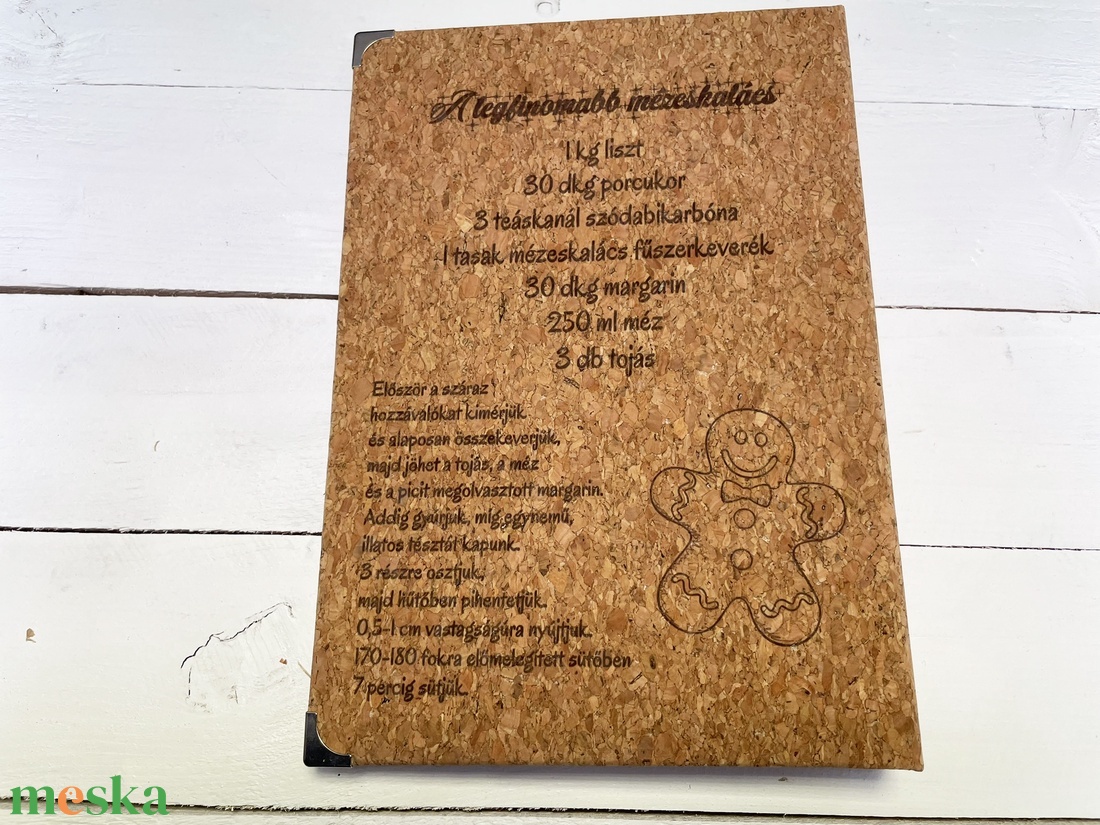 A legfinomabb mézeskalács
1 kg liszt
30 dkg porcukor
3 teáskanál szódabikarbóna
1 tasak mézeskalács fűszerkeverék
30 dkg margarin
250 ml méz
3 db tojás
Először a száraz
hozzávalókat kimérjük
és alaposan összekeverjük,
majd jöhet a tojás, a méz
és a picit megolvasztott margarin.
Addig gyúrjuk, míg egynemű,
illatos tésztát kapunk.
3 részre osztjuk,
majd hűtőben pihentetjük.
0,5-1 cm vastagságúra nyújtjuk.
170-180 fokra előmelegített sütőben
7 percig sütjük.
meska